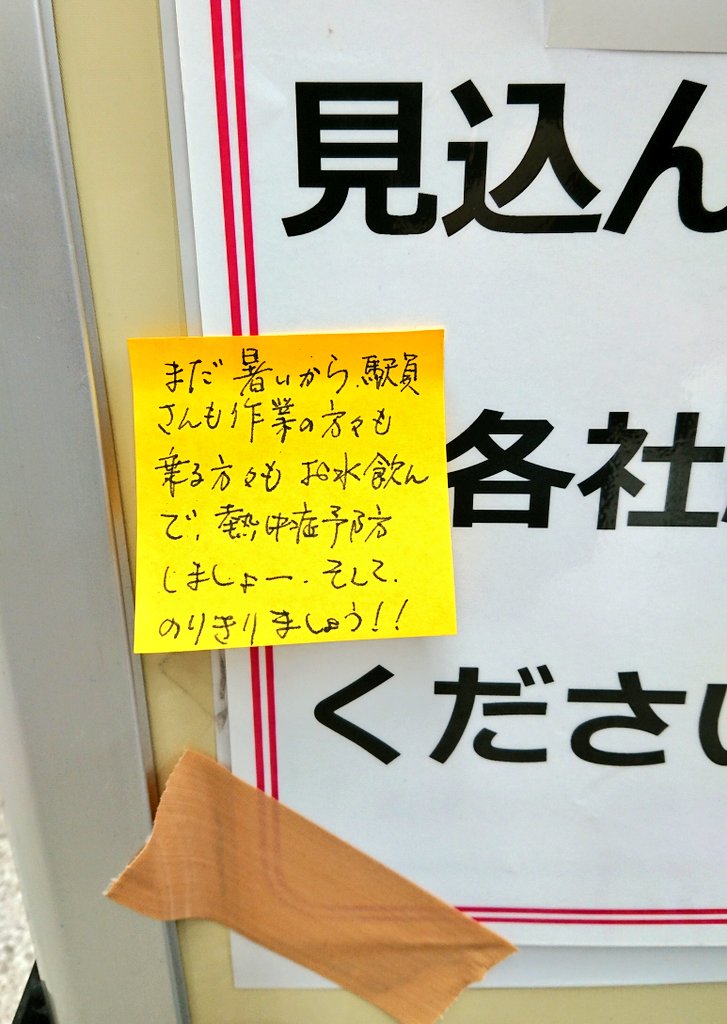 見込ん
まだ暑いから、駅員
さんも作業の方々も
乗る方々もお水飲ん
で、熱中症予防
しましょー、そして、
のりきりましょう!!
各社
ください